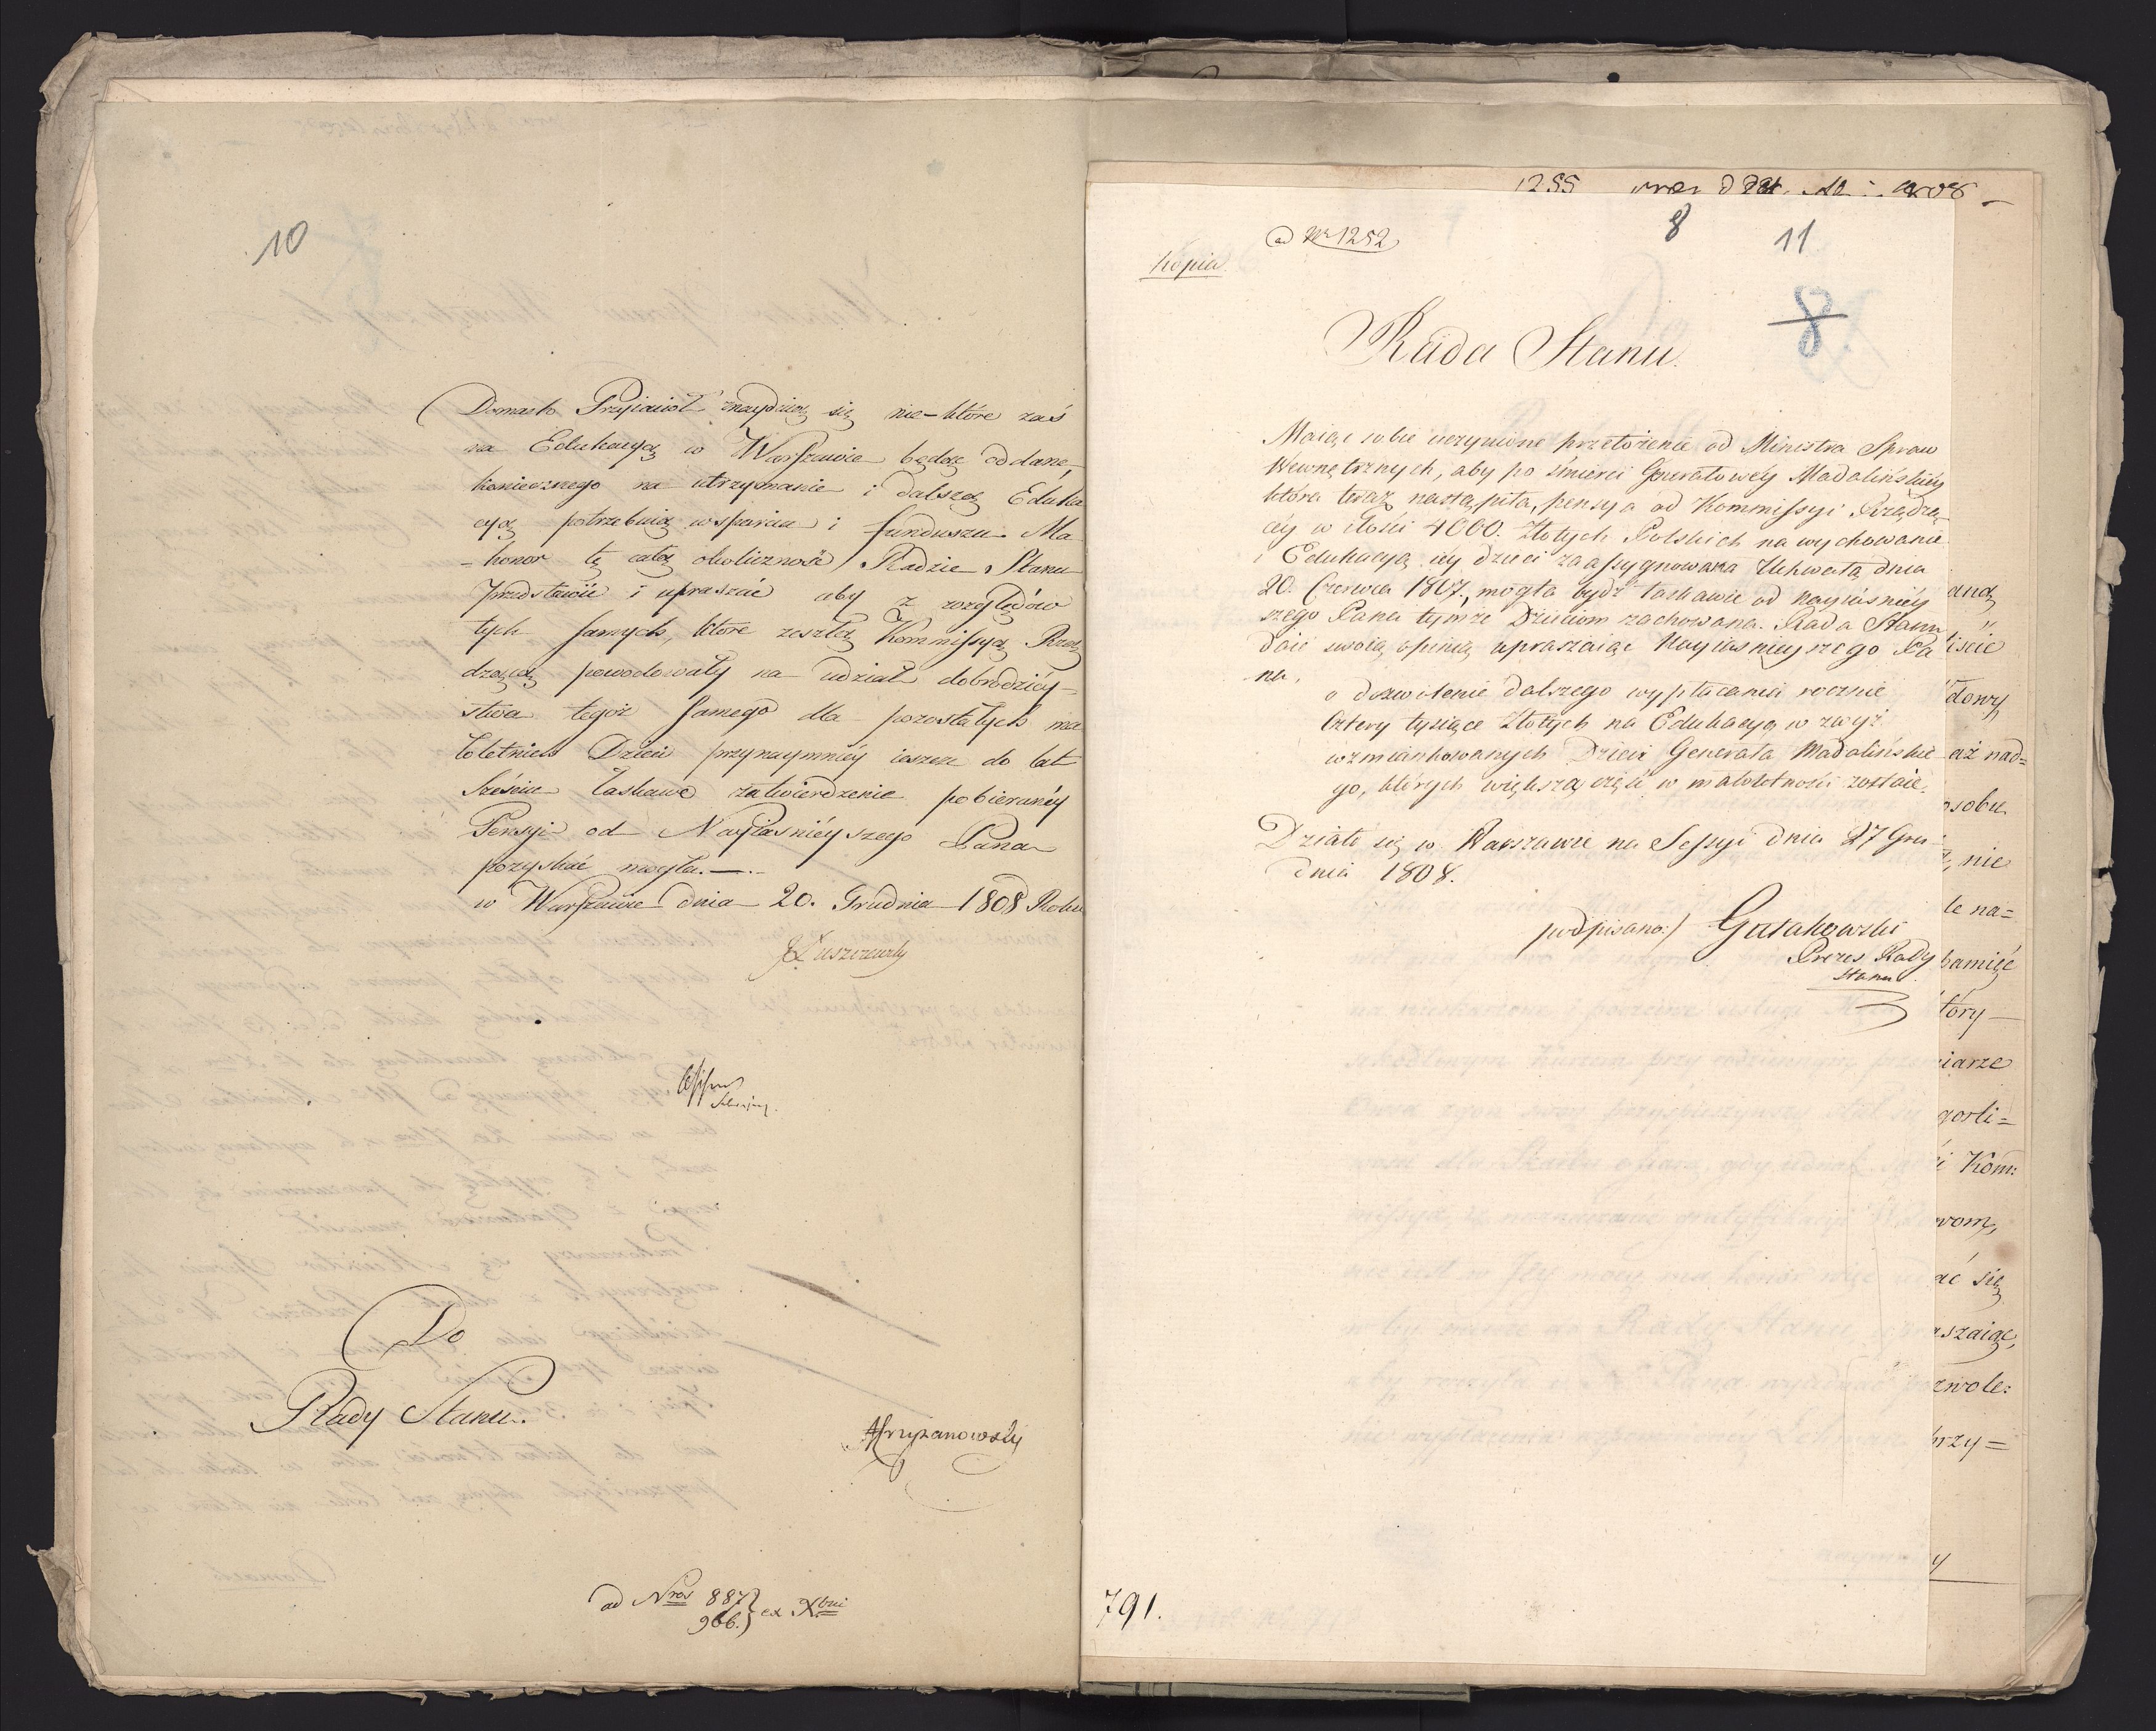 10
Domach Przyiaciół znayduią się nie-które zaś
na Edukacyą w Warszawie będąc oddane,
koniecznego na utrzymanie i dalszą Eduka
cyą potrzebuią wsparcia i funduszu. Ma
honor tę całą okoliczność Radzie Stanu
przedstawić i upraszać aby z względów
tych samych, które zeszłą Kommissyą Rzą
dzącą powodowały na udział dobrodziey-
stwa tegoż samego dla pozostałych ma
loletnich Dzieci przynaymniéy ieszcze do lat
sześciu łaskawe zatwierdzenie pobieranéy
Pensyi od Nayiaśniéyszego Pana
pozyskać mogła.—.
w Warszawie dnia 20. Grudnia 1808 Roku
J Łuszczewski
Do
Rady Stanu.
ad Nros 887
966. ex Xbri
1255
8
11
ad Nr 1252
Kopia
8
Rada Stanu.
Maiąc sobie uczynione przełożenie od Ministra Spraw
Wewnętrznych, aby po śmierci Generałowéy Madalińskiéy
która teraz nastąpiła, pensya od Kommissyi Rządzą
céy w ilości 4000. Złotych Polskich na wychowanie
i Edukacyą iéy dzieci zaassygnowana Uchwałą dnia
20. Czerwca 1807., mogła bydź łaskawie od Nayiaśniéy
szego Pana tymże Dzieciom zachowana. Rada Stanu
daie swoią opinią upraszaiąc Nayiaśnieyszego Pa
na,
o dozwolenie dalszego wypłacania rocznie
Cztery tysiące Złotych na Edukacyą w zwyż
wzmiankowanych Dzieci Generała Madalińskie
go, których większa część w małoletności zostaie.
Działo się w Warszawie na Sessyi dnia 27 Gru
dnia 1808.
podpisano:/ Gutakowski
Prezes Rady
Stanu
791.
aną
iście
dowy
aż nad=
osobu
nie
le na=
pamięć
tóry
iarze
gorli=
i Kom:
wom,
ać się
aszaiąc,
zwole:
przy=